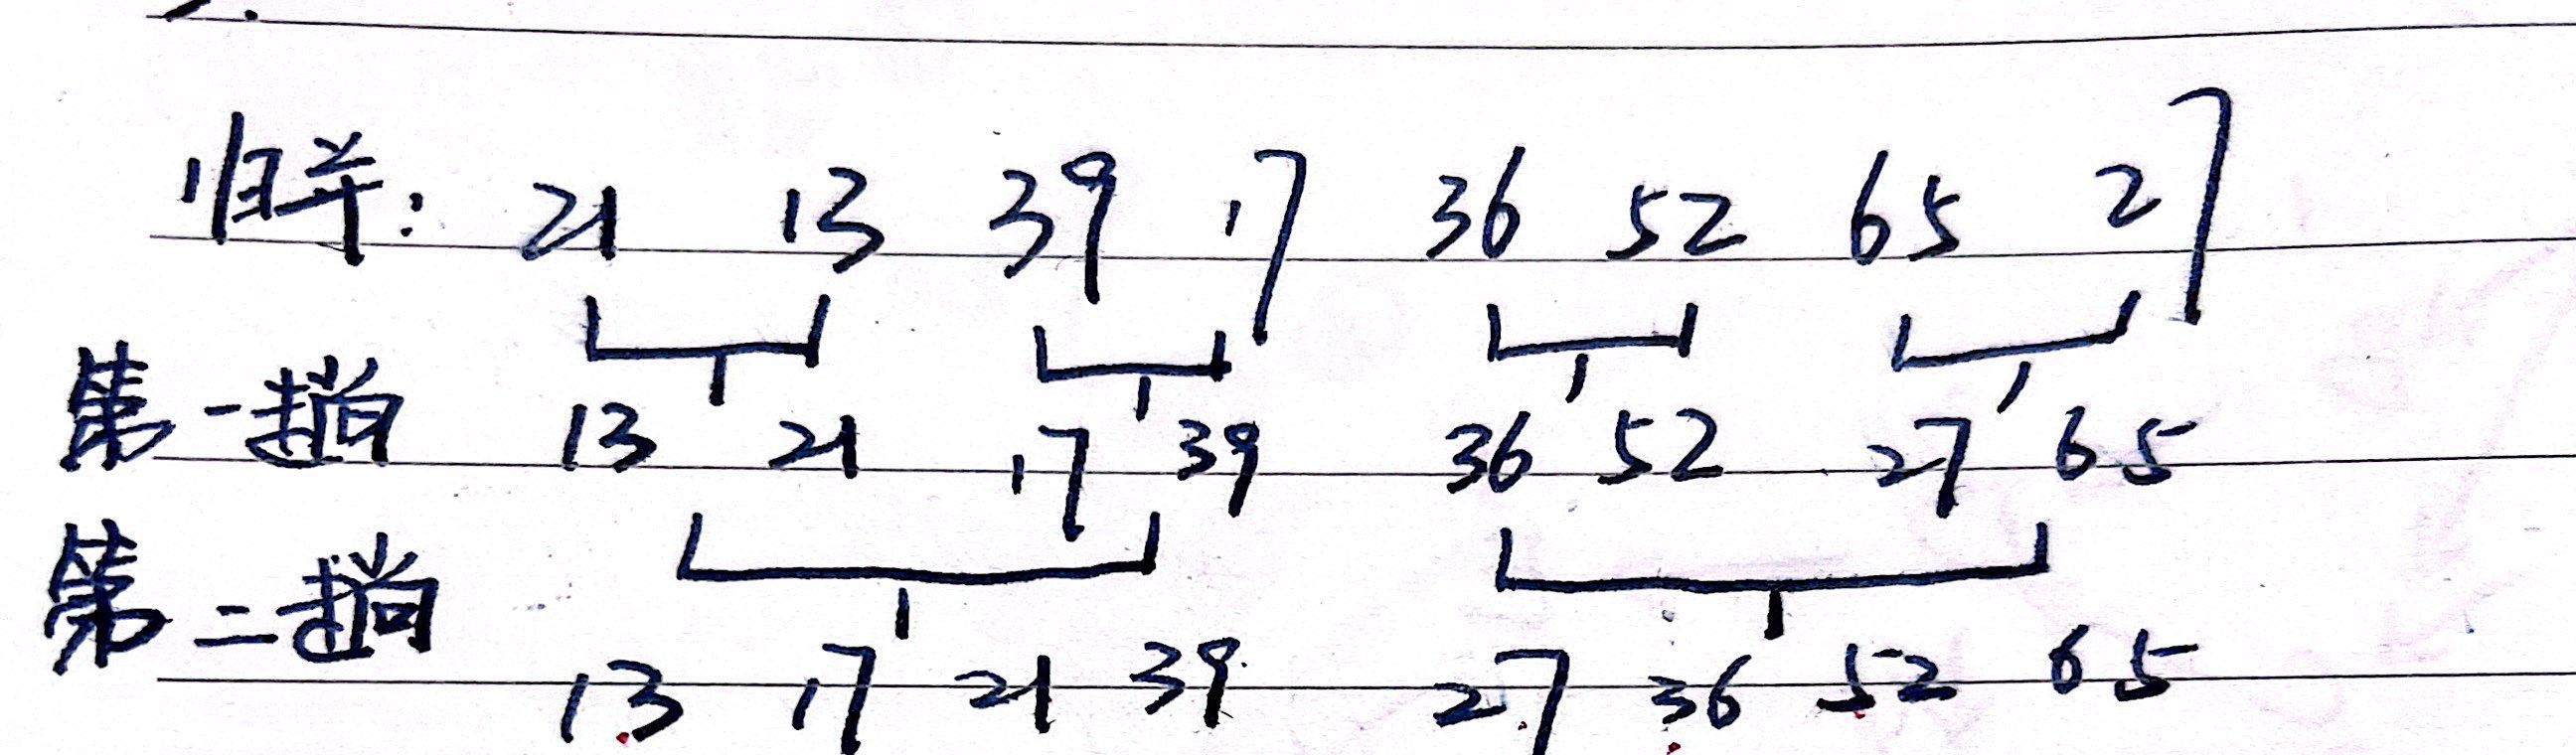 归并: 21 13 39 17 36 52 65 27
第一趟 13 21 17 39 36 52 27 65
第二趟 13 17 21 39 27 36 52 65